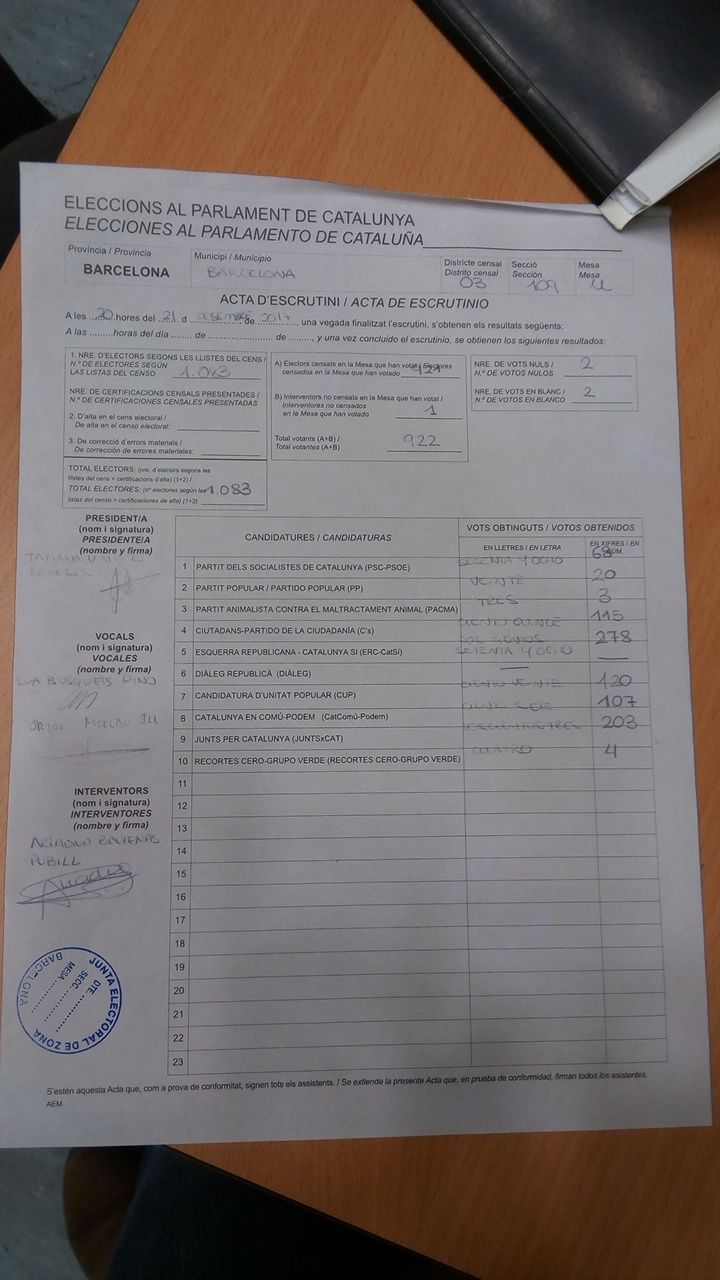 ELECCIONS AL PARLAMENT DE CATALUNYA
ELECCIONES AL PARLAMENTO DE CATALUÑA
Província / Provincia
BARCELONA
Municipi / Municipio
BARCELONA
Districte censal
Distrito censal
03
Secció
Sección
109
Mesa
Mesa
U
ACTA D'ESCRUTINI / ACTA DE ESCRUTINIO
A les 20 hores del 21 d de 2017, una vegada finalitzat l'escrutini, s'obtenen els resultats següents:
A las .........horas del día ...... de ..................... de ........, y una vez concluido el escrutinio, se obtienen los siguientes resultados:
1. NRE. D'ELECTORS SEGONS LES LLISTES DEL CENS /
N.º DE ELECTORES SEGÚN
LAS LISTAS DEL CENSO 1.083
NRE. DE CERTIFICACIONS CENSALS PRESENTADES /
N.º DE CERTIFICACIONES CENSALES PRESENTADAS
2. D'alta en el cens electoral /
De alta en el censo electoral:
3. De correcció d'errors materials /
De corrección de errores materiales:
TOTAL ELECTORS: (nre. d'electors segons les
llistes del cens + certificacions d'alta) (1+2) /
TOTAL ELECTORES: (nº electores según las 1.083
listas del censo + certificaciones de alta) (1+2)
A) Electors censats en la Mesa que han votat / Electores
censados en la Mesa que han votado 921
B) Interventors no censats en la Mesa que han votat /
Interventores no censados
en la Mesa que han votado 1
Total votants (A+B) /
Total votantes (A+B) 922
NRE. DE VOTS NULS /
N.º DE VOTOS NULOS 2
NRE. DE VOTS EN BLANC /
N.º DE VOTOS EN BLANCO 2
PRESIDENT/A
(nom i signatura)
PRESIDENTE/A
(nombre y firma)
TATIANA
VOCALS
(nom i signatura)
VOCALES
(nombre y firma)
BUSQUETS PINO
INTERVENTORS
(nom i signatura)
INTERVENTORES
(nombre y firma)
PUBILL
CANDIDATURES / CANDIDATURAS
VOTS OBTINGUTS / VOTOS OBTENIDOS
EN LLETRES / EN LETRA
EN XIFRES / EN NÚM.
1 PARTIT DELS SOCIALISTES DE CATALUNYA (PSC-PSOE) Y OCHO 68
2 PARTIT POPULAR / PARTIDO POPULAR (PP) VEINTE 20
3 PARTIT ANIMALISTA CONTRA EL MALTRACTAMENT ANIMAL (PACMA) TRES 3
4 CIUTADANS-PARTIDO DE LA CIUDADANÍA (C's) CIENTO QUINCE 115
5 ESQUERRA REPUBLICANA - CATALUNYA SI (ERC-CatSí) DOS CIENTOS SETENTA Y OCHO 278
6 DIÀLEG REPUBLICÀ (DIÀLEG) —
7 CANDIDATURA D'UNITAT POPULAR (CUP) CIENTO VEINTE 120
8 CATALUNYA EN COMÚ-PODEM (CatComú-Podem) 107
9 JUNTS PER CATALUNYA (JUNTSxCAT) 203
10 RECORTES CERO-GRUPO VERDE (RECORTES CERO-GRUPO VERDE) CUATRO 4
11
12
13
14
15
16
17
18
19
20
21
22
23
JUNTA ELECTORAL DE ZONA
BARCELONA
DTE.
SECC.
MESA
S'estén aquesta Acta que, com a prova de conformitat, signen tots els assistents. / Se extiende la presente Acta que, en prueba de conformidad, firman todos los asistentes.
AEM